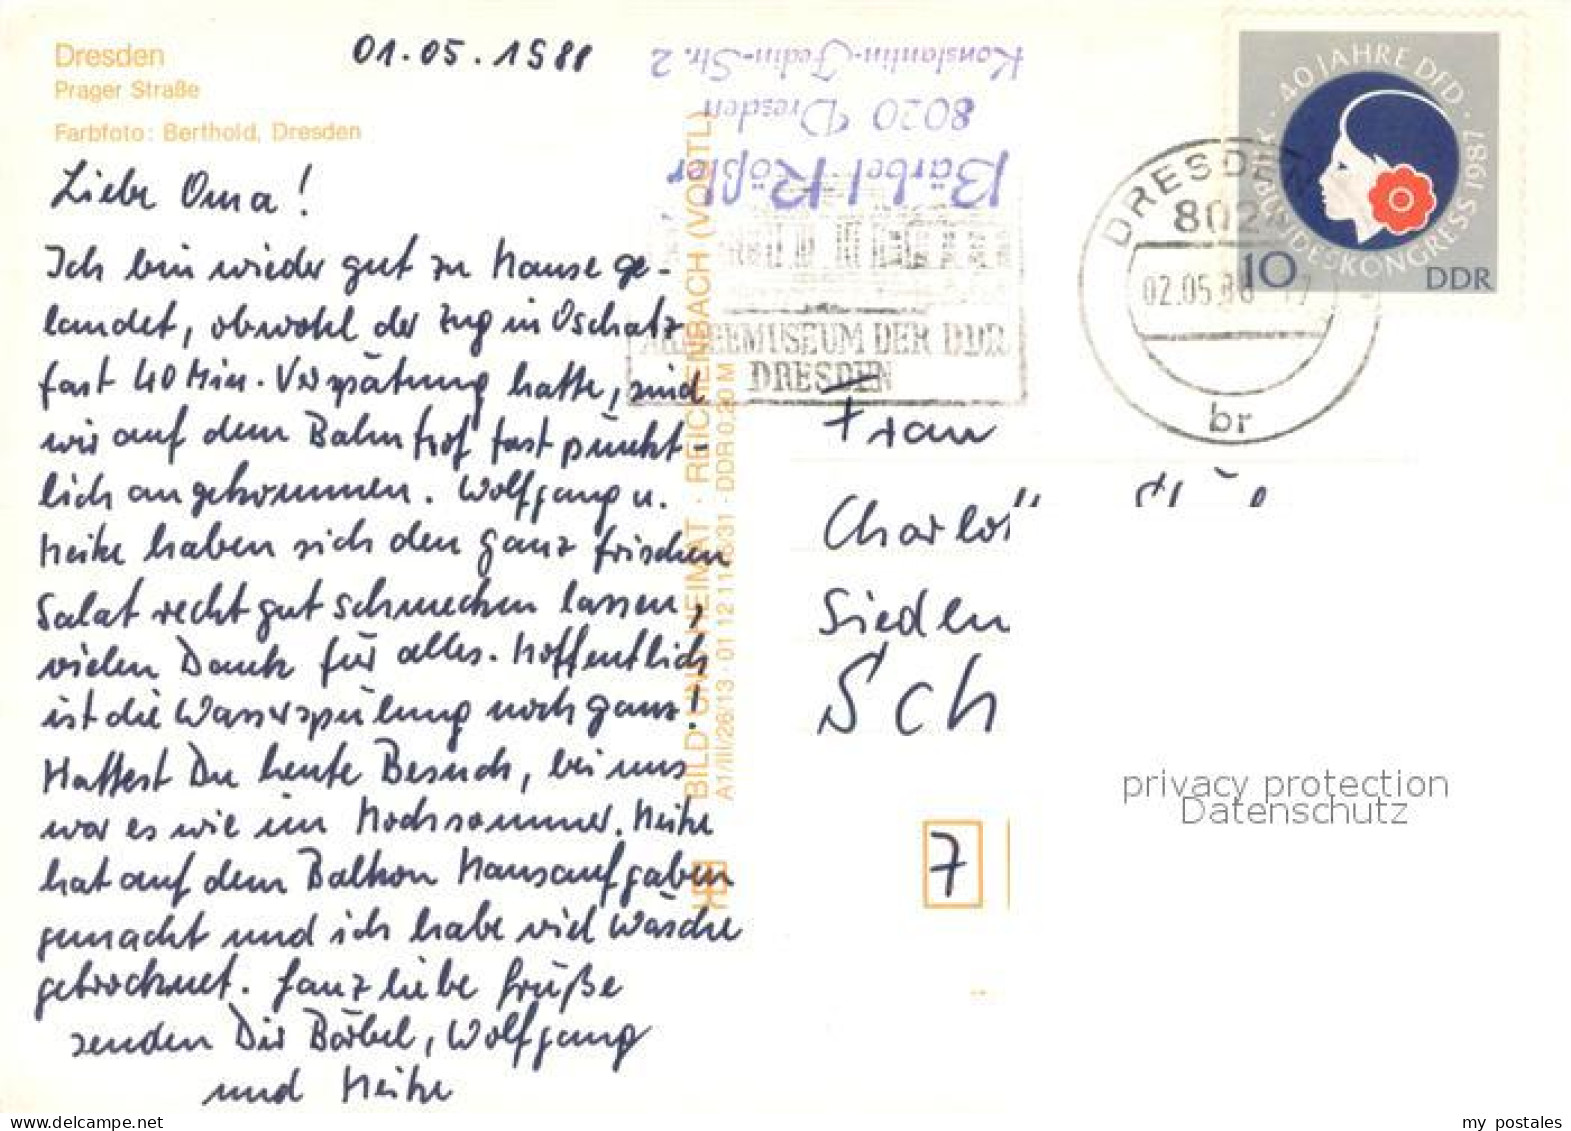 Dresden
Prager Straße
Farbfoto: Berthold, Dresden
01.05.1988
Liebe Oma!
Ich bin wieder gut zu Hause ge-
landet, obwohl der Zug in Oschatz
fast 40 Min. Verspätung hatte, sind
wir auf dem Bahnhof fast pünkt-
lich angekommen. Wolfgang u.
Heike haben sich den ganz frischen
Salat recht gut schmecken lassen,
vielen Dank für alles. Hoffentlich
ist die Wasserspülung noch ganz!
Hattest Du heute Besuch, bei uns
war es wie im Hochsommer. Heike
hat auf dem Balkon Hausaufgaben
gemacht und ich habe viel Wäsche
getrocknet. Ganz liebe Grüße
senden Dir Bärbel, Wolfgang
und Heike
BILD UND HEIMAT · REICHENBACH (VOGTL)
A1/III/26/13 · 01 12 1146/31 · DDR 0,20 M
Bärbel Rößler
8020 Dresden
Konstantin-Fedin-Str. 2
ARMEEMUSEUM DER DDR
DRESDEN
DRESDEN
802
02.05.88
br
40 JAHRE DFD
BUNDESKONGRESS 1987
10
DDR
Frau
Charlott
Siedlun
Sch
7
privacy protection
Datenschutz
my postales